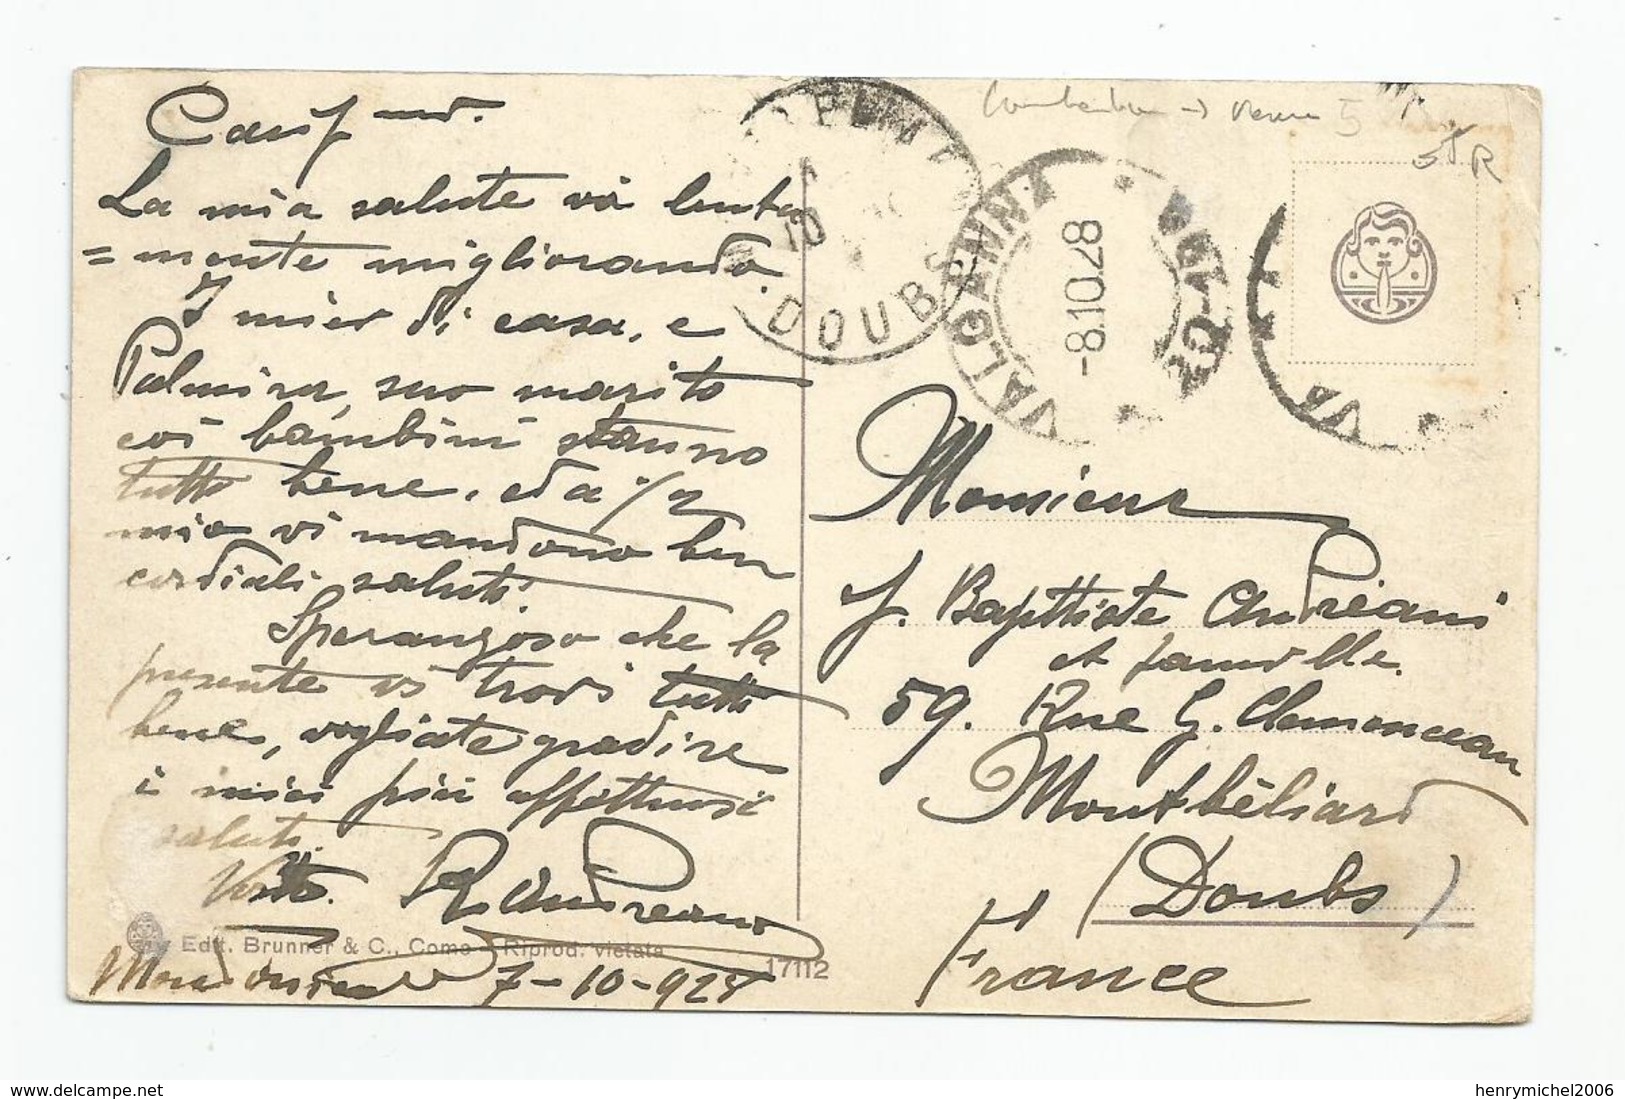 La mia salute và lenta
=mente migliorando.
I miei di casa, e
Palmira, suo marito
coi bambini stanno
tutti bene, ed a 1/2
mio vi mandono ben
cordiali saluti.
Speranzoso che la
presente vi trovi tutti
bene, vogliate gradire
i miei più affettuosi
saluti.
Vostro. R. Andreani
Edit. Brunner & C., Como - Riprod. vietata
17112
7-10-928
DOUBS
VALGANNA
-8.10.28
VA
5
Monsieur
J. Baptiste Andreani
et famille.
59. Rue G. Clemenceau
Montbéliard
(Doubs)
France
delcampe.net
henrymichel2006